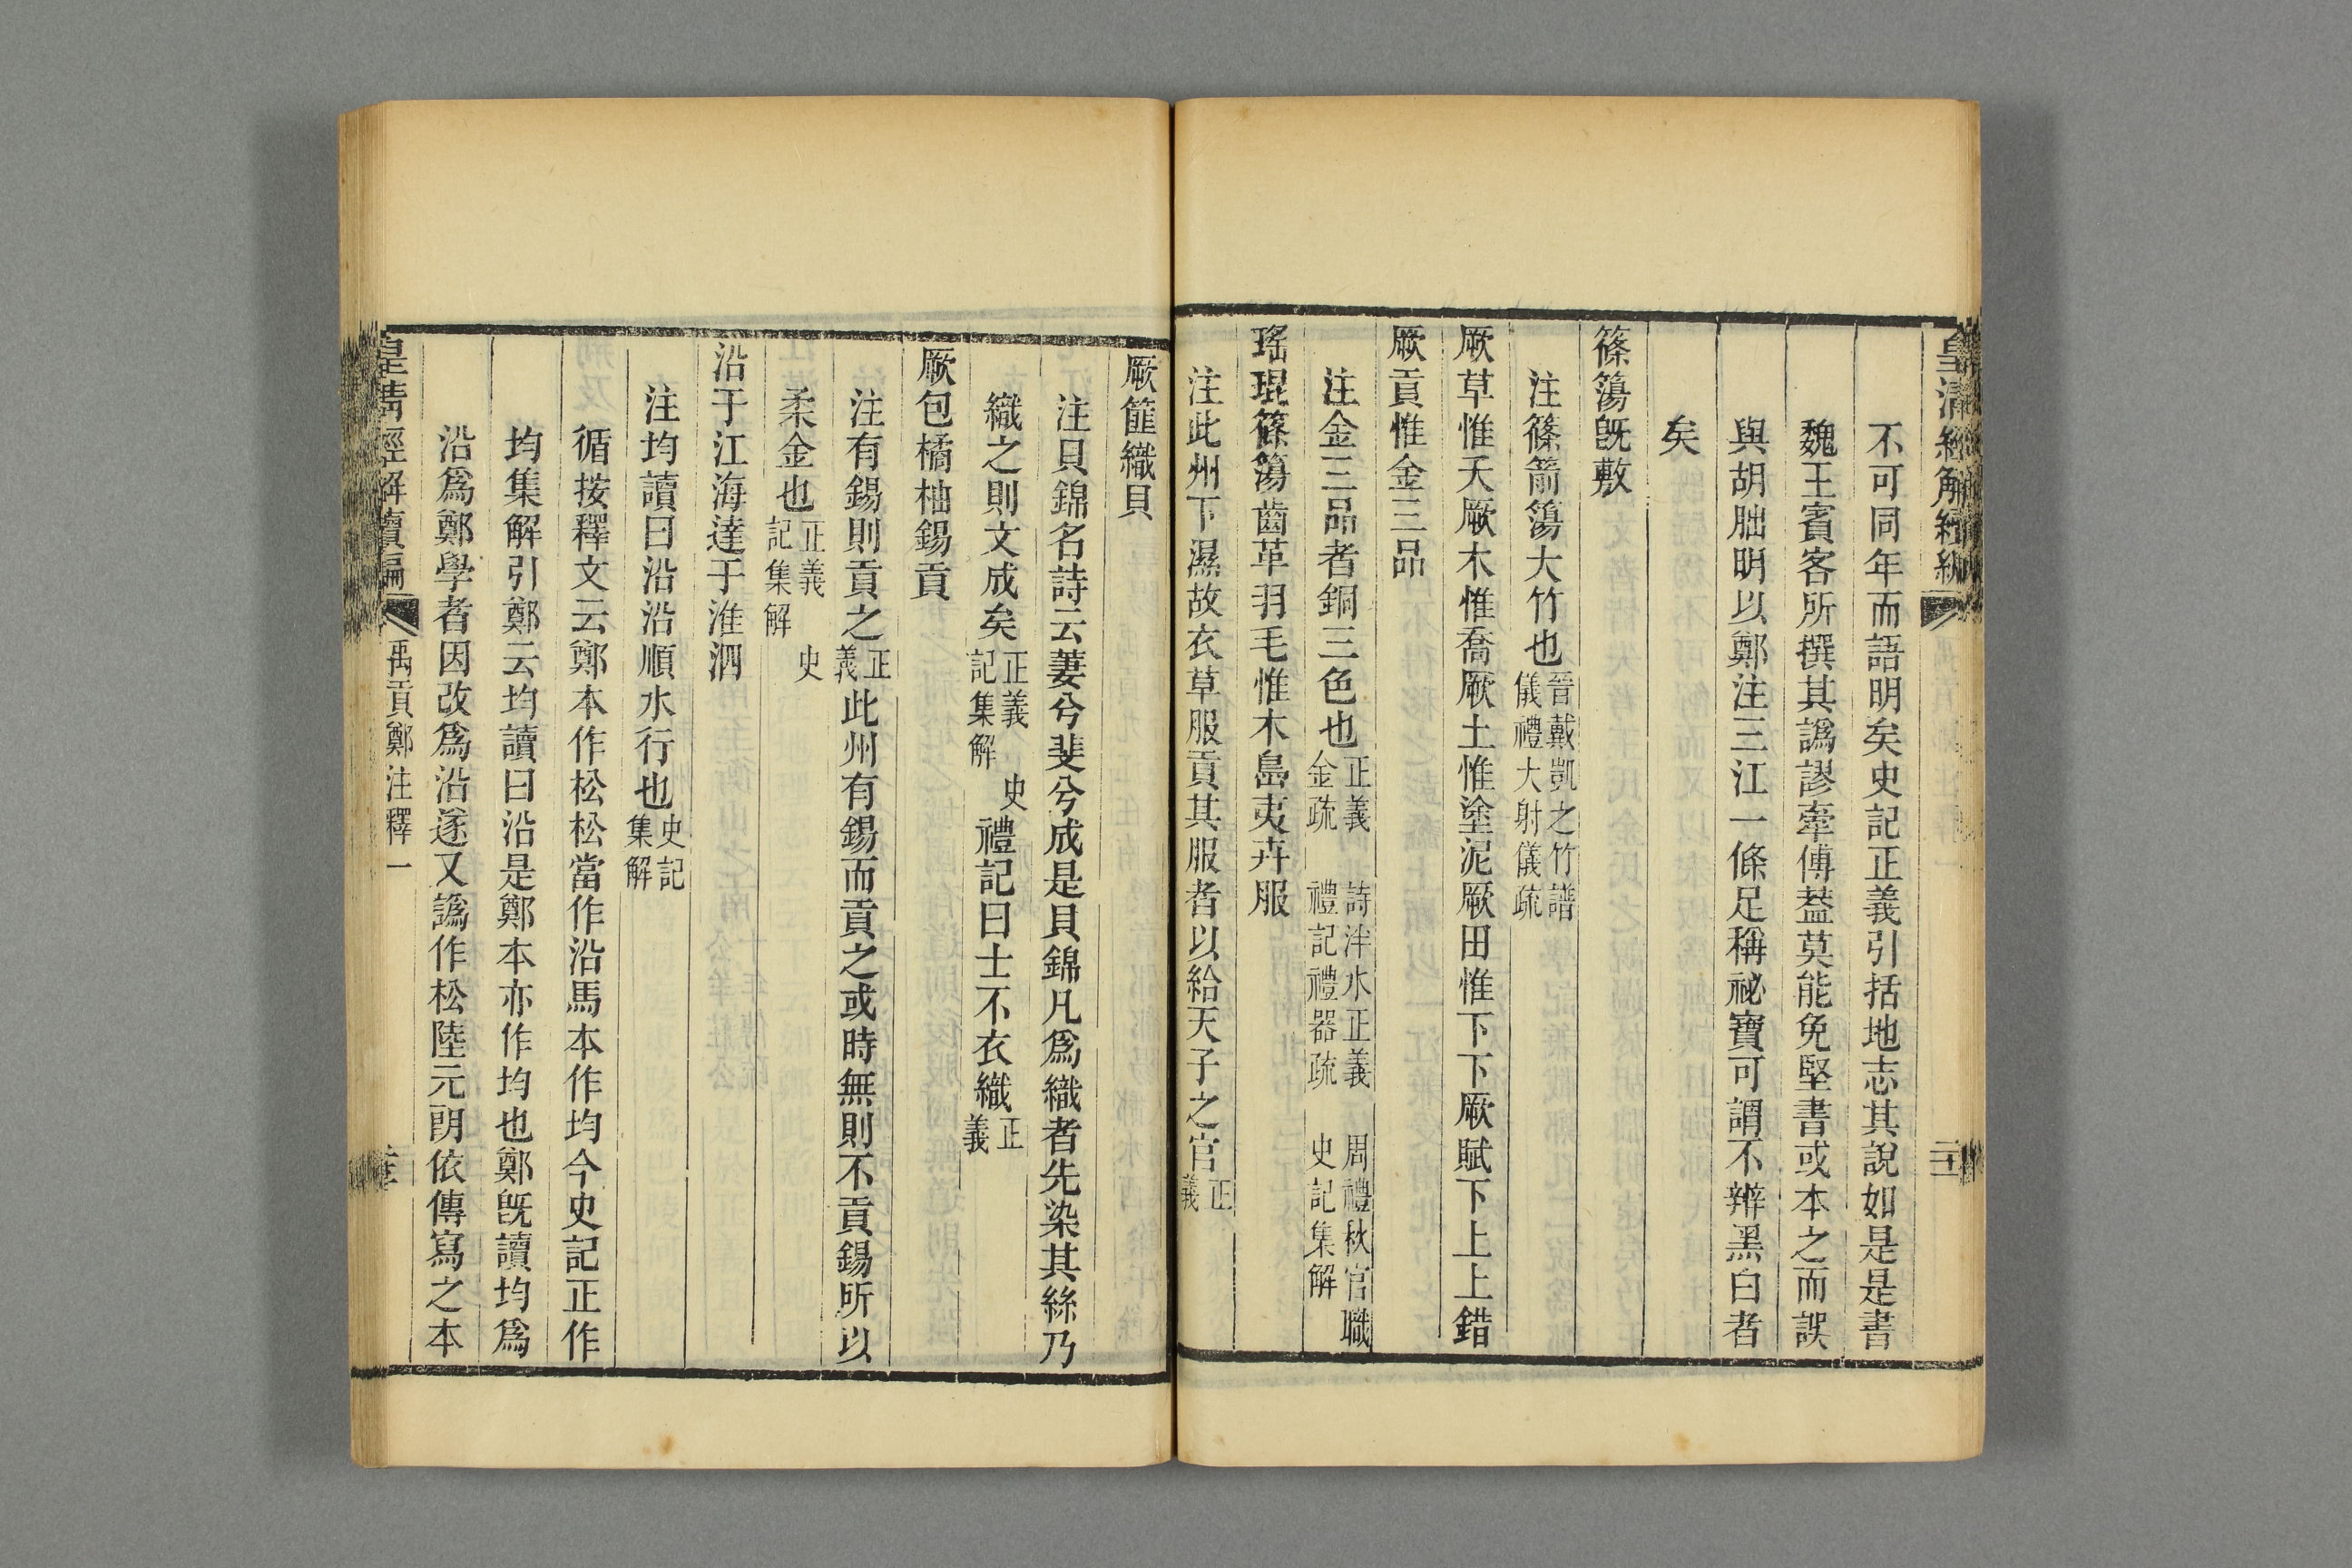 不可同年而語明矣史記正義引括地志其說如是是書
魏王賓客所撰其譌謬牽傅葢莫能免堅書或本之而誤
與胡朏明以鄭注三江一條足稱祕寶可謂不辨黑白者
矣
篠簜旣敷
注篠箭簜大竹也晉戴凱之竹譜儀禮大射儀疏
厥草惟夭厥木惟喬厥土惟塗泥厥田惟下下厥賦下上上錯
厥貢惟金三品
注金三品者銅三色也正義金疏詩泮水正義禮記禮器疏周禮秋官職史記集解
瑤琨篠簜齒革羽毛惟木島夷卉服
注此州下濕故衣草服貢其服者以給天子之官正義
厥篚織貝
注貝錦名詩云萋兮斐兮成是貝錦凡爲織者先染其絲乃
織之則文成矣正義史記集解禮記曰士不衣織正義
厥包橘柚錫貢
注有錫則貢之正義此州有錫而貢之或時無則不貢錫所以
柔金也正義史記集解
沿于江海達于淮泗
注均讀曰沿沿順水行也史記集解
循按釋文云鄭本作松松當作沿馬本作均今史記正作
均集解引鄭云均讀曰沿是鄭本亦作均也鄭旣讀均爲
沿爲鄭學者因改爲沿遂又譌作松陸元朗依傳寫之本
皇淸經解續編
禹貢鄭注釋一